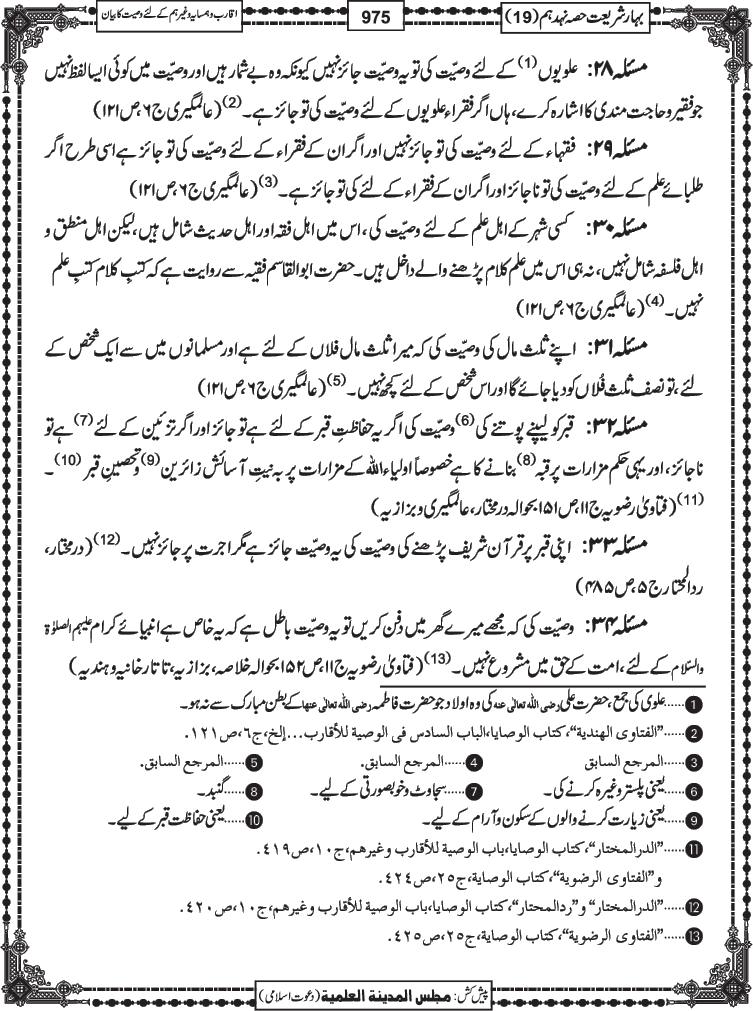 بہار شریعت حصہ نہدہم (19)
975
اقارب و ہمسایہ وغیرہم کے لئے وصیت کا بیان
مسئلہ ۲۸: علویوں (1) کے لئے وصیت کی تو یہ وصیت جائز نہیں کیونکہ وہ بے شمار ہیں اور وصیت میں کوئی ایسا لفظ نہیں
جو فقیر و حاجت مندی کا اشارہ کرے، ہاں اگر فقراء علویوں کے لئے وصیّت کی تو جائز ہے۔ (2) (عالمگیری ج۶، ص۱۲۱)
مسئلہ ۲۹: فقہاء کے لئے وصیّت کی تو جائز نہیں اور اگر ان کے فقراء کے لئے وصیّت کی تو جائز ہے اسی طرح اگر
طلبائے علم کے لئے وصیّت کی تو ناجائز اور اگر ان کے فقراء کے لئے کی تو جائز ہے۔ (3) (عالمگیری ج۶، ص۱۲۱)
مسئلہ ۳۰: کسی شہر کے اہل علم کے لئے وصیّت کی، اس میں اہل فقہ اور اہل حدیث شامل ہیں، لیکن اہل منطق و
اہل فلسفہ شامل نہیں، نہ ہی اس میں علم کلام پڑھنے والے داخل ہیں۔ حضرت ابوالقاسم فقیہ سے روایت ہے کہ کتبِ کلام کتبِ علم
نہیں۔ (4) (عالمگیری ج۶، ص۱۲۱)
مسئلہ ۳۱: اپنے ثلث مال کی وصیّت کی کہ میرا ثلث مال فلاں کے لئے ہے اور مسلمانوں میں سے ایک شخص کے
لئے، تو نصف ثلث فُلاں کو دیا جائے گا اور اس شخص کے لئے کچھ نہیں۔ (5) (عالمگیری ج۶، ص۱۲۱)
مسئلہ ۳۲: قبر کو لیپنے پوتنے کی (6) وصیّت کی اگر یہ حفاظتِ قبر کے لئے ہے تو جائز اور اگر تزئین کے لئے (7) ہے تو
ناجائز، اور یہی حکم مزارات پر قبہ (8) بنانے کا ہے خصوصاً اولیاء اللہ کے مزارات پر بہ نیتِ آسائش زائرین (9) و تحصینِ قبر (10) ۔
(11) (فتاویٰ رضویہ ج۱۱، ص۱۵۱ بحوالہ درمختار، عالمگیری و بزازیہ)
مسئلہ ۳۳: اپنی قبر پر قرآن شریف پڑھنے کی وصیّت کی یہ وصیّت جائز ہے مگر اجرت پر جائز نہیں۔ (12) (درمختار،
ردالمحتار ج۵، ص۴۸۵)
مسئلہ ۳۴: وصیّت کی کہ مجھے میرے گھر میں دفن کریں تو یہ وصیّت باطل ہے کہ یہ خاص ہے انبیائے کرام علیہم الصلوٰۃ
والسّلام کے لئے، امت کے حق میں مشروع نہیں۔ (13) (فتاویٰ رضویہ ج۱۱، ص۱۵۲ بحوالہ خلاصہ، بزازیہ، تاتارخانیہ و ہندیہ)
1 ......علوی کی جمع، حضرت علی رضی اللہ تعالیٰ عنہ کی وہ اولاد جو حضرت فاطمہ رضی اللہ تعالیٰ عنہا کے بطن مبارک سے نہ ہو۔
2 ......"الفتاوی الھندیة"، کتاب الوصایا، الباب السادس فی الوصیة للأقارب...إلخ، ج٦، ص١٢١.
3 ......المرجع السابق 4 ......المرجع السابق. 5 ......المرجع السابق.
6 ......یعنی پلستر وغیرہ کرنے کی۔ 7 ......سجاوٹ و خوبصورتی کے لیے۔ 8 ......گنبد۔
9 ......یعنی زیارت کرنے والوں کے سکون و آرام کے لیے۔ 10 ......یعنی حفاظت قبر کے لیے۔
11 ......"الدرالمختار"، کتاب الوصایا، باب الوصیة للأقارب وغیرھم، ج١٠، ص٤١٩.
و"الفتاوی الرضویة"، کتاب الوصایة، ج٢٥، ص٤٢٤.
12 ......"الدرالمختار" و"ردالمحتار"، کتاب الوصایا، باب الوصیة للأقارب وغیرھم، ج١٠، ص٤٢٠.
13 ......"الفتاوی الرضویة"، کتاب الوصایة، ج٢٥، ص٤٢٥.
پیش کش: مجلس المدینة العلمیة (دعوت اسلامی)